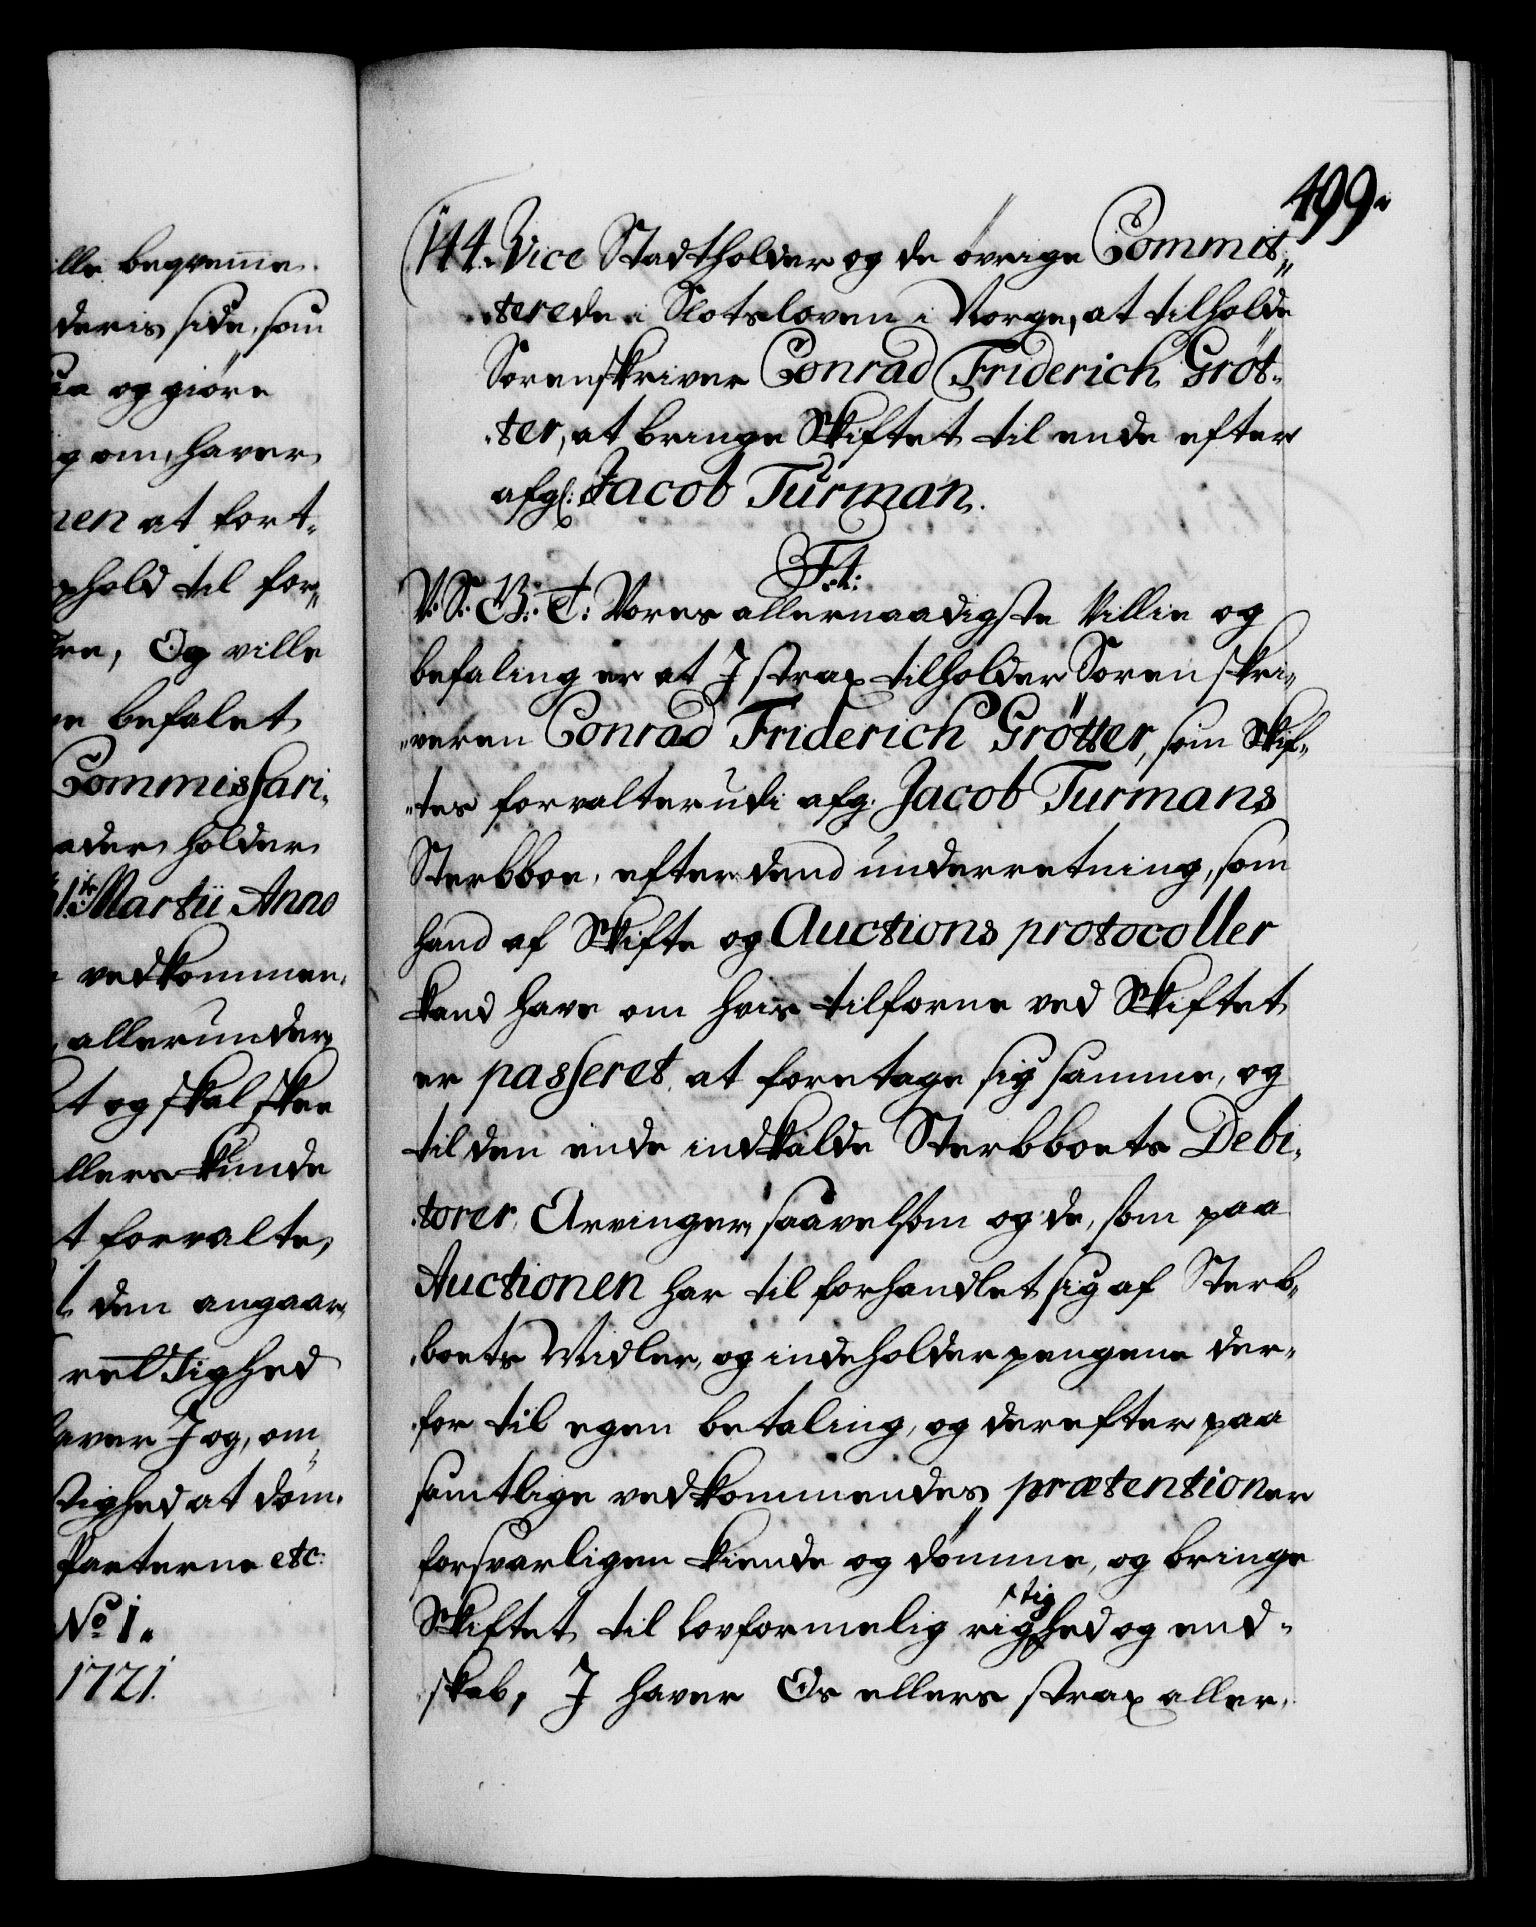 lle beqvemme
deris side, som
og giöre
om, haver
nen at fort-
hold til for-
Og ville
befalet
Commissari-
holder
Martii Anno
vedkommen-
allerunder-
t og skal skee
ellers kunde
t forvalte,
den angaar,
reltighed
haver I og, om
stighed at döm-
Parterne etc:
No 1.
1721.
499.
144. Vice Stadtholder og de övrige Commit-
terede i Slotsloven i Norge, at tilholde
Sorenskriver Conrad Friderich Gröt-
ter, at bringe Skiftet til ende efter
afgl: Jacob Turman.
F. 4:
V: S: G: T: Vores allernaadigste Villie og
befaling er at I strax tilholder Sorenskri-
veren Conrad Friderich Grötter, som Skif-
tes forvalter udi afg. Jacob Turmans
Sterbboe, efter dend underretning, som
hand af Skifte og Auctions protocoller
kand have om hvis tilforne ved Skiftet
er passeret, at foretage sig samme, og
til den ende indkalde Sterbboets Debi-
torer, Arvinger, saavelsom og de, som paa
Auctionen har til forhandlet sig af Sterb-
boets Midler, og indeholder pengene der-
for til egen betaling, og derefter paa
samtlige vedkommendes prætentioner
forsvarligen kiende og dömme, og bringe
Skiftet til lovformelig rigtighed og end-
skab, I haver Os ellers strax aller-